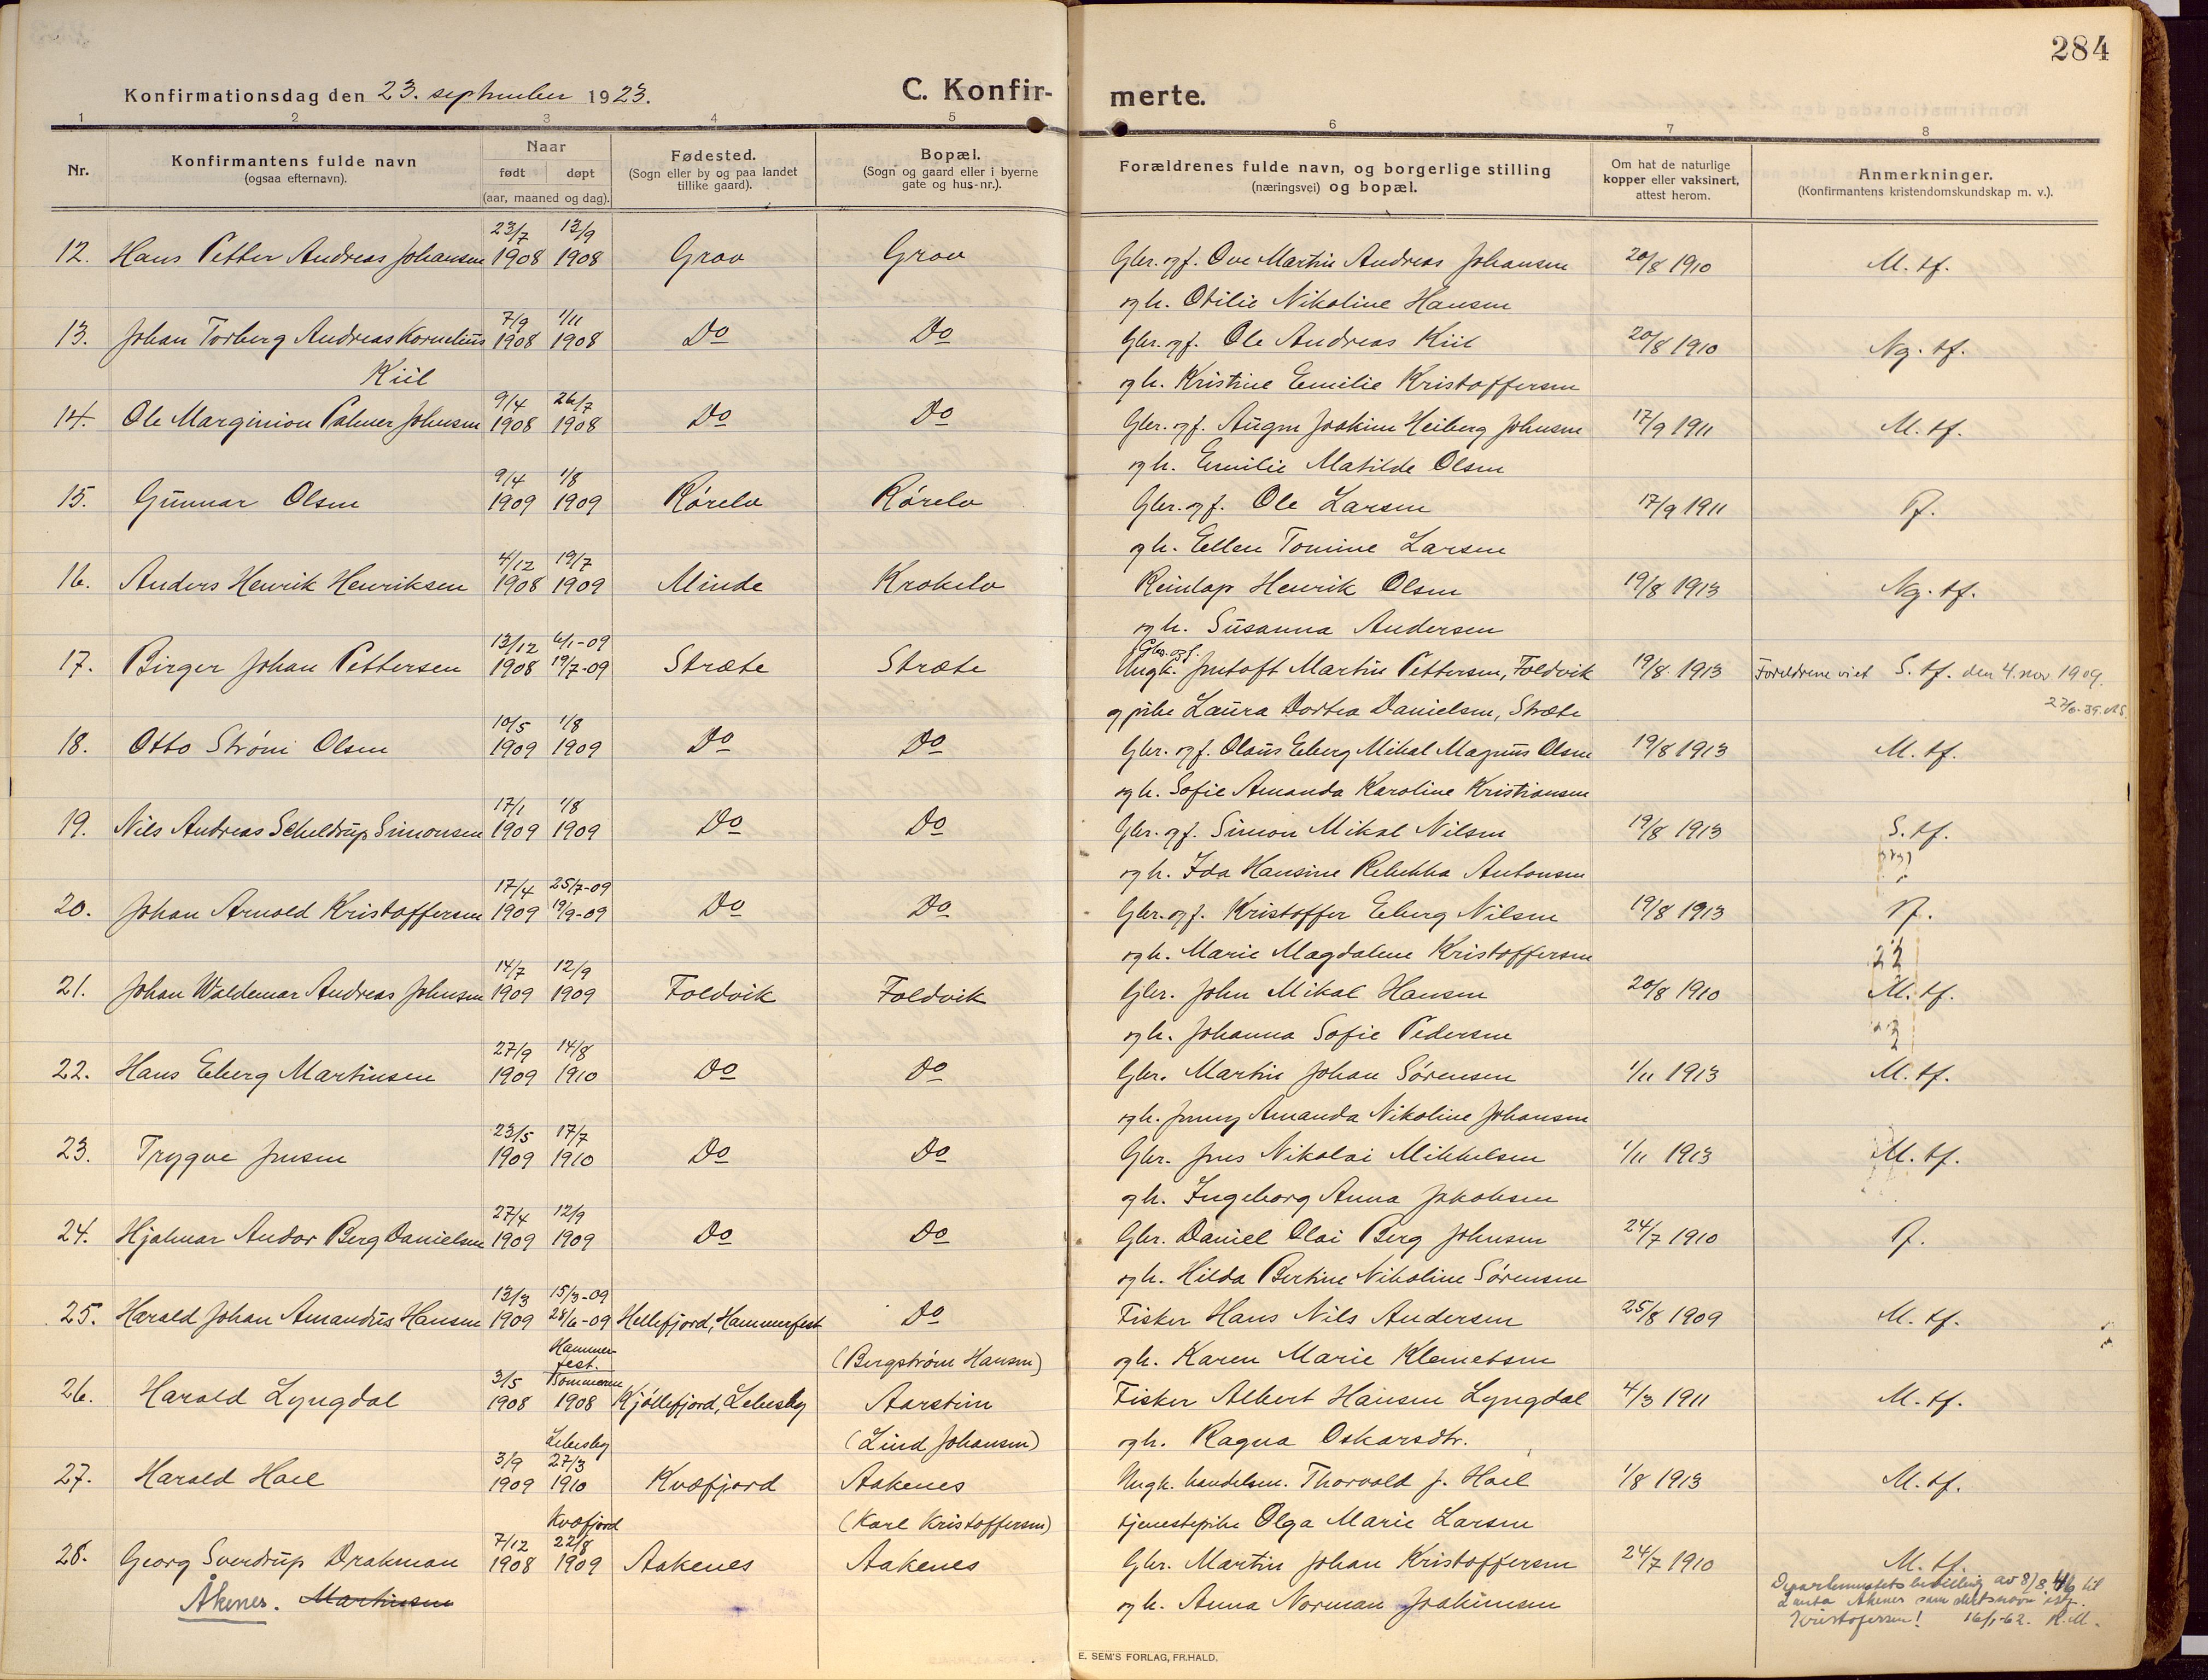 284
Konfirmationsdag den 23. september 1923.
C. Konfir-
merte.
1 2 3 4 5 6 7 8
Nr.
Konfirmantens fulde navn
(ogsaa efternavn).
Naar
født døpt
(aar, maaned og dag).
Fødested.
(Sogn eller by og paa landet
tillike gaard).
Bopæl.
(Sogn og gaard eller i byerne
gate og hus-nr.).
Forældrenes fulde navn, og borgerlige stilling
(næringsvei) og bopæl.
Om hat de naturlige
kopper eller vaksinert,
attest herom.
Anmerkninger.
(Konfirmantens kristendomskundskap m. v.).
23/7 13/9
12. Hans Petter Andreas Johansen 1908 1908 Grov Grov Gbr. og f. Ove Martin Andreas Johansen 20/8 1910 M. tf.
og h. Otilie Nikoline Hansen
7/9 1/11
13. Johan Torberg Andreas Kornelius 1908 1908 Do Do Gbr. og f. Ole Andreas Kiil 20/8 1910 Ng. tf.
Kiil og h. Kristine Emilie Kristoffersen
9/4 26/7
14. Ole Marginion Palmer Johnsen 1908 1908 Do Do Gbr. og f. Augen Joakim Heiberg Johnsen 17/9 1911 M. tf.
og h. Emilie Matilde Olsen
9/4 1/8
15. Gunnar Olsen 1909 1909 Rørelv Rørelv Gbr. og f. Ole Larsen 17/9 1911
og h. Ellen Tomine Larsen
4/12 19/7
16. Anders Henrik Henriksen 1908 1909 Minde Krokelv Reinlap Henrik Olsen 19/8 1913 Ng. tf.
og h. Susanna Andersen
13/12 6/1-09 Gbr. og f.
17. Birger Johan Pettersen 1908 19/7-09 Stræte Stræte Ungk. Jentoft Martin Pettersen, Foldvik 19/8 1913 Foreldrene viet S. tf. den 4. nov 1909.
og pike Laura Dortea Danielsen, Stræte 27/6-39.
10/5 1/8
18. Otto Strøm Olsen 1909 1909 Do Do Gbr. og f. Olaus Eberg Mikal Magnus Olsen 19/8 1913 M. tf.
og h. Sofie Amanda Karoline Kristiansen
17/1 1/8
19. Nils Andreas Scheldrup Simonsen 1909 1909 Do Do Gbr. og f. Simon Mikal Nilsen 19/8 1913 S. tf.
og h. Ida Hansine Rebekka Antonsen
17/4 25/7-09
20. Johan Arnold Kristoffersen 1909 19/9-09 Do Do Gbr. og f. Kristoffer Eberg Nilsen 19/8 1913
og h. Marie Magdalene Kristoffersen
14/7 12/9
21. Johan Waldemar Andreas Johnsen 1909 1909 Foldvik Foldvik Gbr. John Mikal Hansen 20/8 1910 M. tf.
og h. Johanna Sofie Pedersen
27/9 14/8
22. Hans Eberg Martinsen 1909 1910 Do Do Gbr. Martin Johan Sørensen 1/11 1913 M. tf.
og h. Jenny Amanda Nikoline Johansen
23/5 17/7
23. Trygve Jensen 1909 1910 Do Do Gbr. Jens Nikolai Mikkelsen 1/11 1913 M. tf.
og h. Ingeborg Anna Jakobsen
27/4 12/9
24. Hjalmar Andor Berg Danielsen 1909 1909 Do Do Gbr. Daniel Olai Berg Johnsen 24/7 1910
og h. Hilda Bertine Nikoline Sørensen
13/3 15/3-09
25. Harald Johan Amandus Hansen 1909 28/6-09 Hellefjord, Hammerfest Do Fisker Hans Nils Andersen 25/8 1909 M. tf.
Hammerfest. (Bergstrøm Hansen) og h. Karen Marie Klemetsen
3/5 Sommeren
26. Harald Lyngdal 1908 1908 Kjøllefjord, Lebesby Aarstein Fisker Albert Hansen Lyngdal 4/3 1911 M. tf.
Lebesby (Lind Johansen) og h. Ragna Oskarsdtr.
3/9 27/3
27. Harald Hoel 1909 1910 Kvæfjord Aakenes Ungk. handelsm. Thorvald J. Hoel 1/8 1913 M. tf.
Kvæfjord (Karl Kristoffersen) tjenestepike Olga Marie Larsen
7/12 22/8
28. Georg Sverdrup Drakman 1908 1909 Aakenes Aakenes Gbr. Martin Johan Kristoffersen 24/7 1910 M. tf.
Åkenes. Martinsen og h. Anna Norman Joakimsen
Departementets bevilling av 8/8.46 til
å anta Åkenes som slektsnavn istf.
Kristofersen! 16/1-62. R.M.
E. SEM'S FORLAG, FR.HALD.